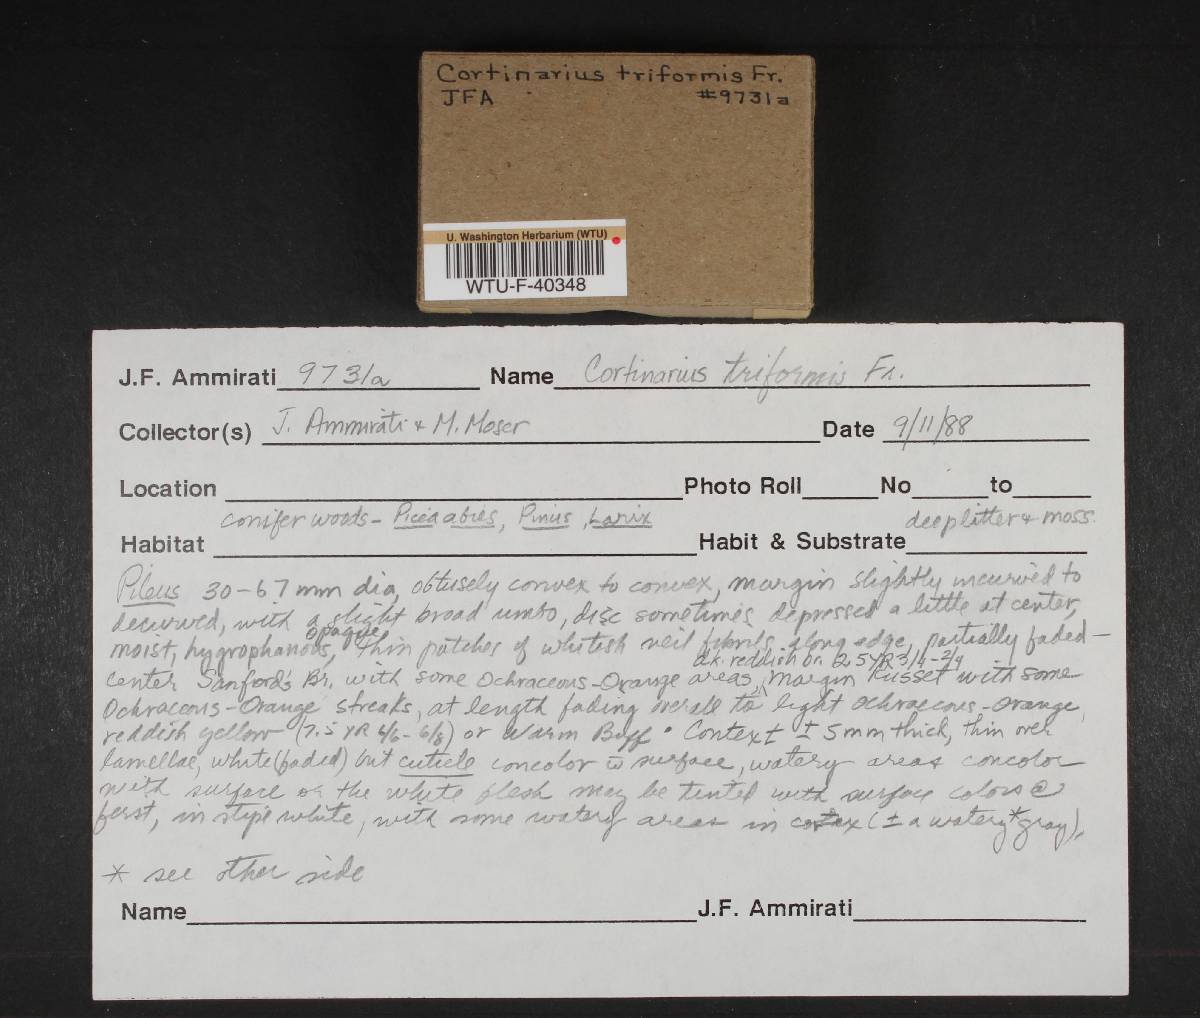 Cortinarius triformis Fr.
JFA #9731a
U. Washington Herbarium (WTU)
WTU-F-40348
J.F. Ammirati 9731a Name Cortinarius triformis Fr.
Collector(s) J. Ammirati + M. Moser Date 9/11/88
Location Photo Roll No to
Habitat conifer woods - Picea abies, Pinus, Larix Habit & Substrate deep litter + moss.
Pileus 30-67 mm dia, obtusely convex to convex, margin slightly incurved to
decurved, with a slight broad umbo, disc sometimes depressed a little at center,
moist, hygrophanous, opaque, thin patches of whitish veil fibrils along edge, partially faded -
center Sanford's Br. with some Ochraceous-Orange areas, margin dk. reddish br. 2.5YR 3/4-2/4 Russet with some
Ochraceous-Orange streaks, at length fading overall to light Ochraceous-Orange,
reddish yellow (7.5 YR 6/6-6/8) or Warm Buff. Context ± 5mm thick, thin over
lamellae, white (faded) but cuticle concolor w̄ surface, watery areas concolor
with surface or the white flesh may be tinted with surface colors @
first, in stipe white, with some watery areas in cortex (± a watery* gray).
* see other side
Name J.F. Ammirati